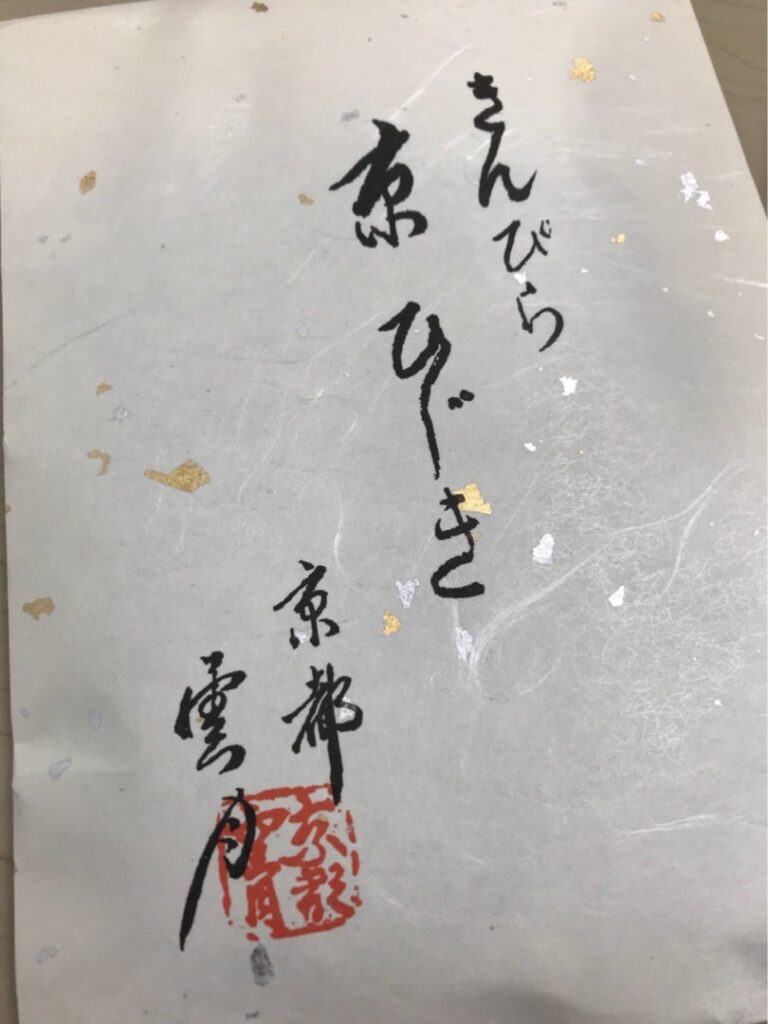 きんぴら
京ひじき
京都
雲月
京都
雲月